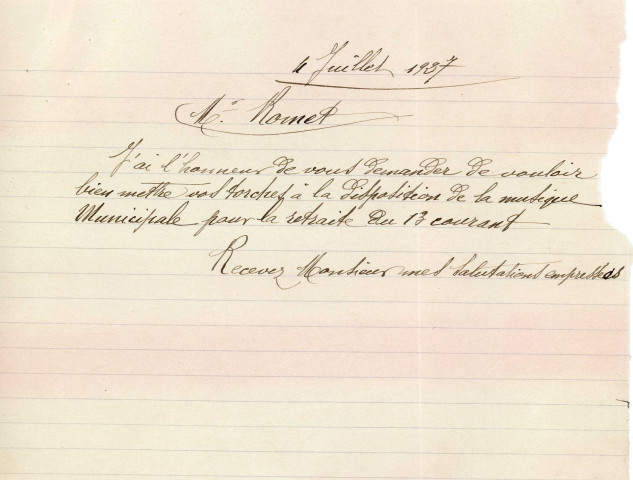 4 Juillet 1937
Mr Romet
J'ai l'honneur de vous demander de vouloir
bien mettre vos torches à la disposition de la musique
Municipale pour la retraite du 13 courant
Recevez Monsieur mes salutations empressées